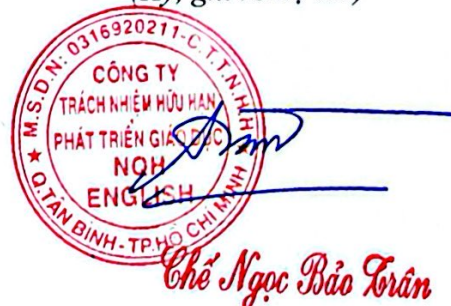 M.S.D.N: 0316920211-C.T.T.N.H.H
CÔNG TY
TRÁCH NHIỆM HỮU HẠN
PHÁT TRIỂN GIÁO DỤC
NQH
ENGLISH
★ Q.TÂN BÌNH - TP.HỒ CHÍ MINH ★
Chế Ngọc Bảo Trân